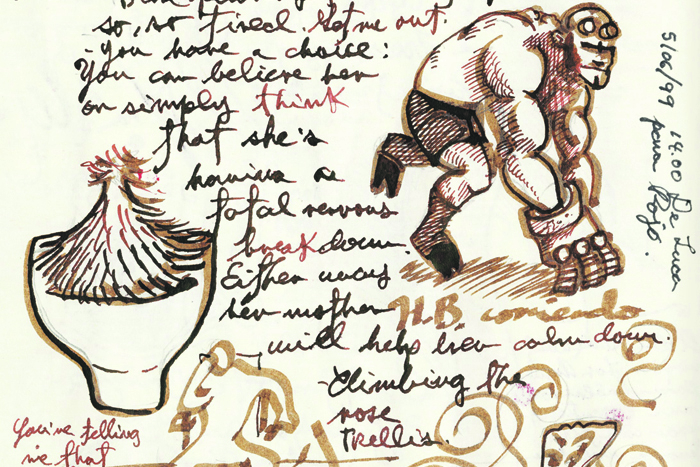 so, so tired. Let me out.
- you have a choice:
You can believe her
or simply think
that she's
having a
total nervous
breakdown.
Either way
her mother
will help her calm down.
- Climbing the
rose
trellis.
H.B. corriendo
5/06/99 14.00 De Luca
para Rojo.
You're telling
me that